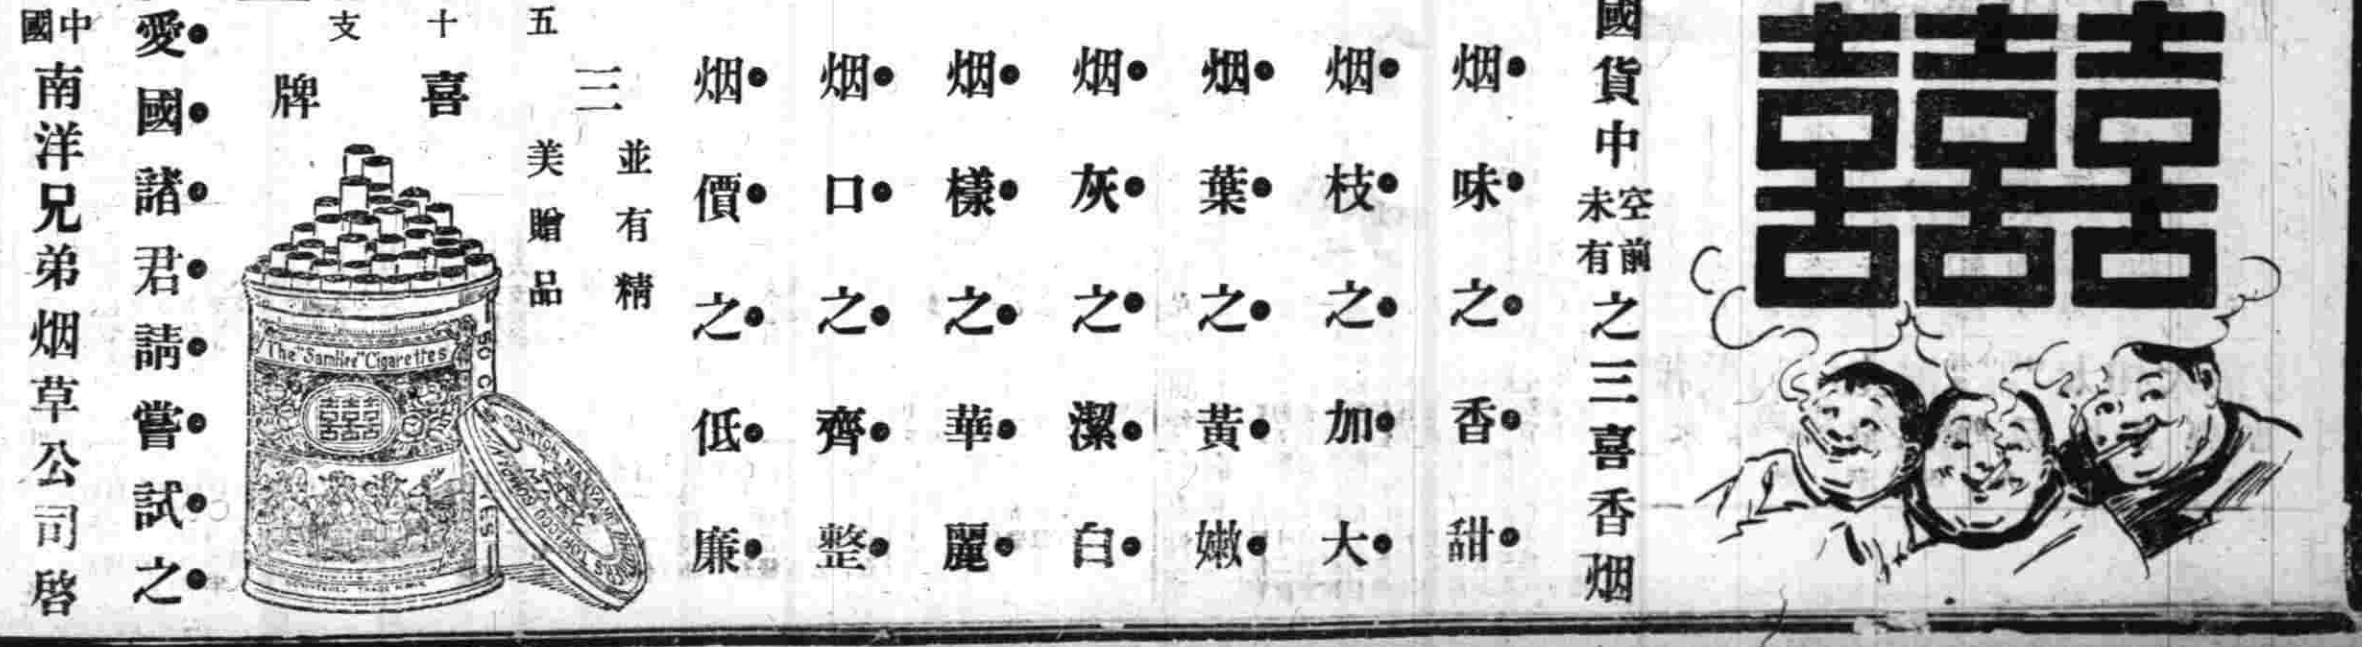 囍喜
國貨中空前未有之三喜香烟
烟味之香甜
烟枝之加大
烟葉之黃嫩
烟灰之潔白
烟樣之華麗
烟口之齊整
烟價之低廉
三喜牌
五十支
並有精美贈品
The "SamHee" Cigarettes
愛國諸君請嘗試之
中國南洋兄弟烟草公司啓